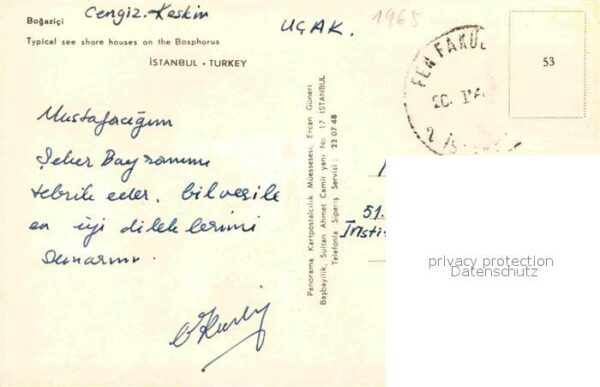 Cengiz. Keskin
Boğaziçi
Typical see shore houses on the Bosphorus
İSTANBUL - TURKEY
UÇAK.
1965
FEN FAKÜL
20. 1
2. İS
53
Mustafacığım
Şeker Bayramını
tebrik eder, bilvesile
en iyi dileklerimi
sunarım.
Panorama Kartpostalcılık Müessesesi, Ercan Güneri
Başbayilik, Sultan Ahmet Camii yanı No 17 İSTANBUL
Telefonla Sipariş Servisi : 22 07 48
51.
Insti
privacy protection
Datenschutz